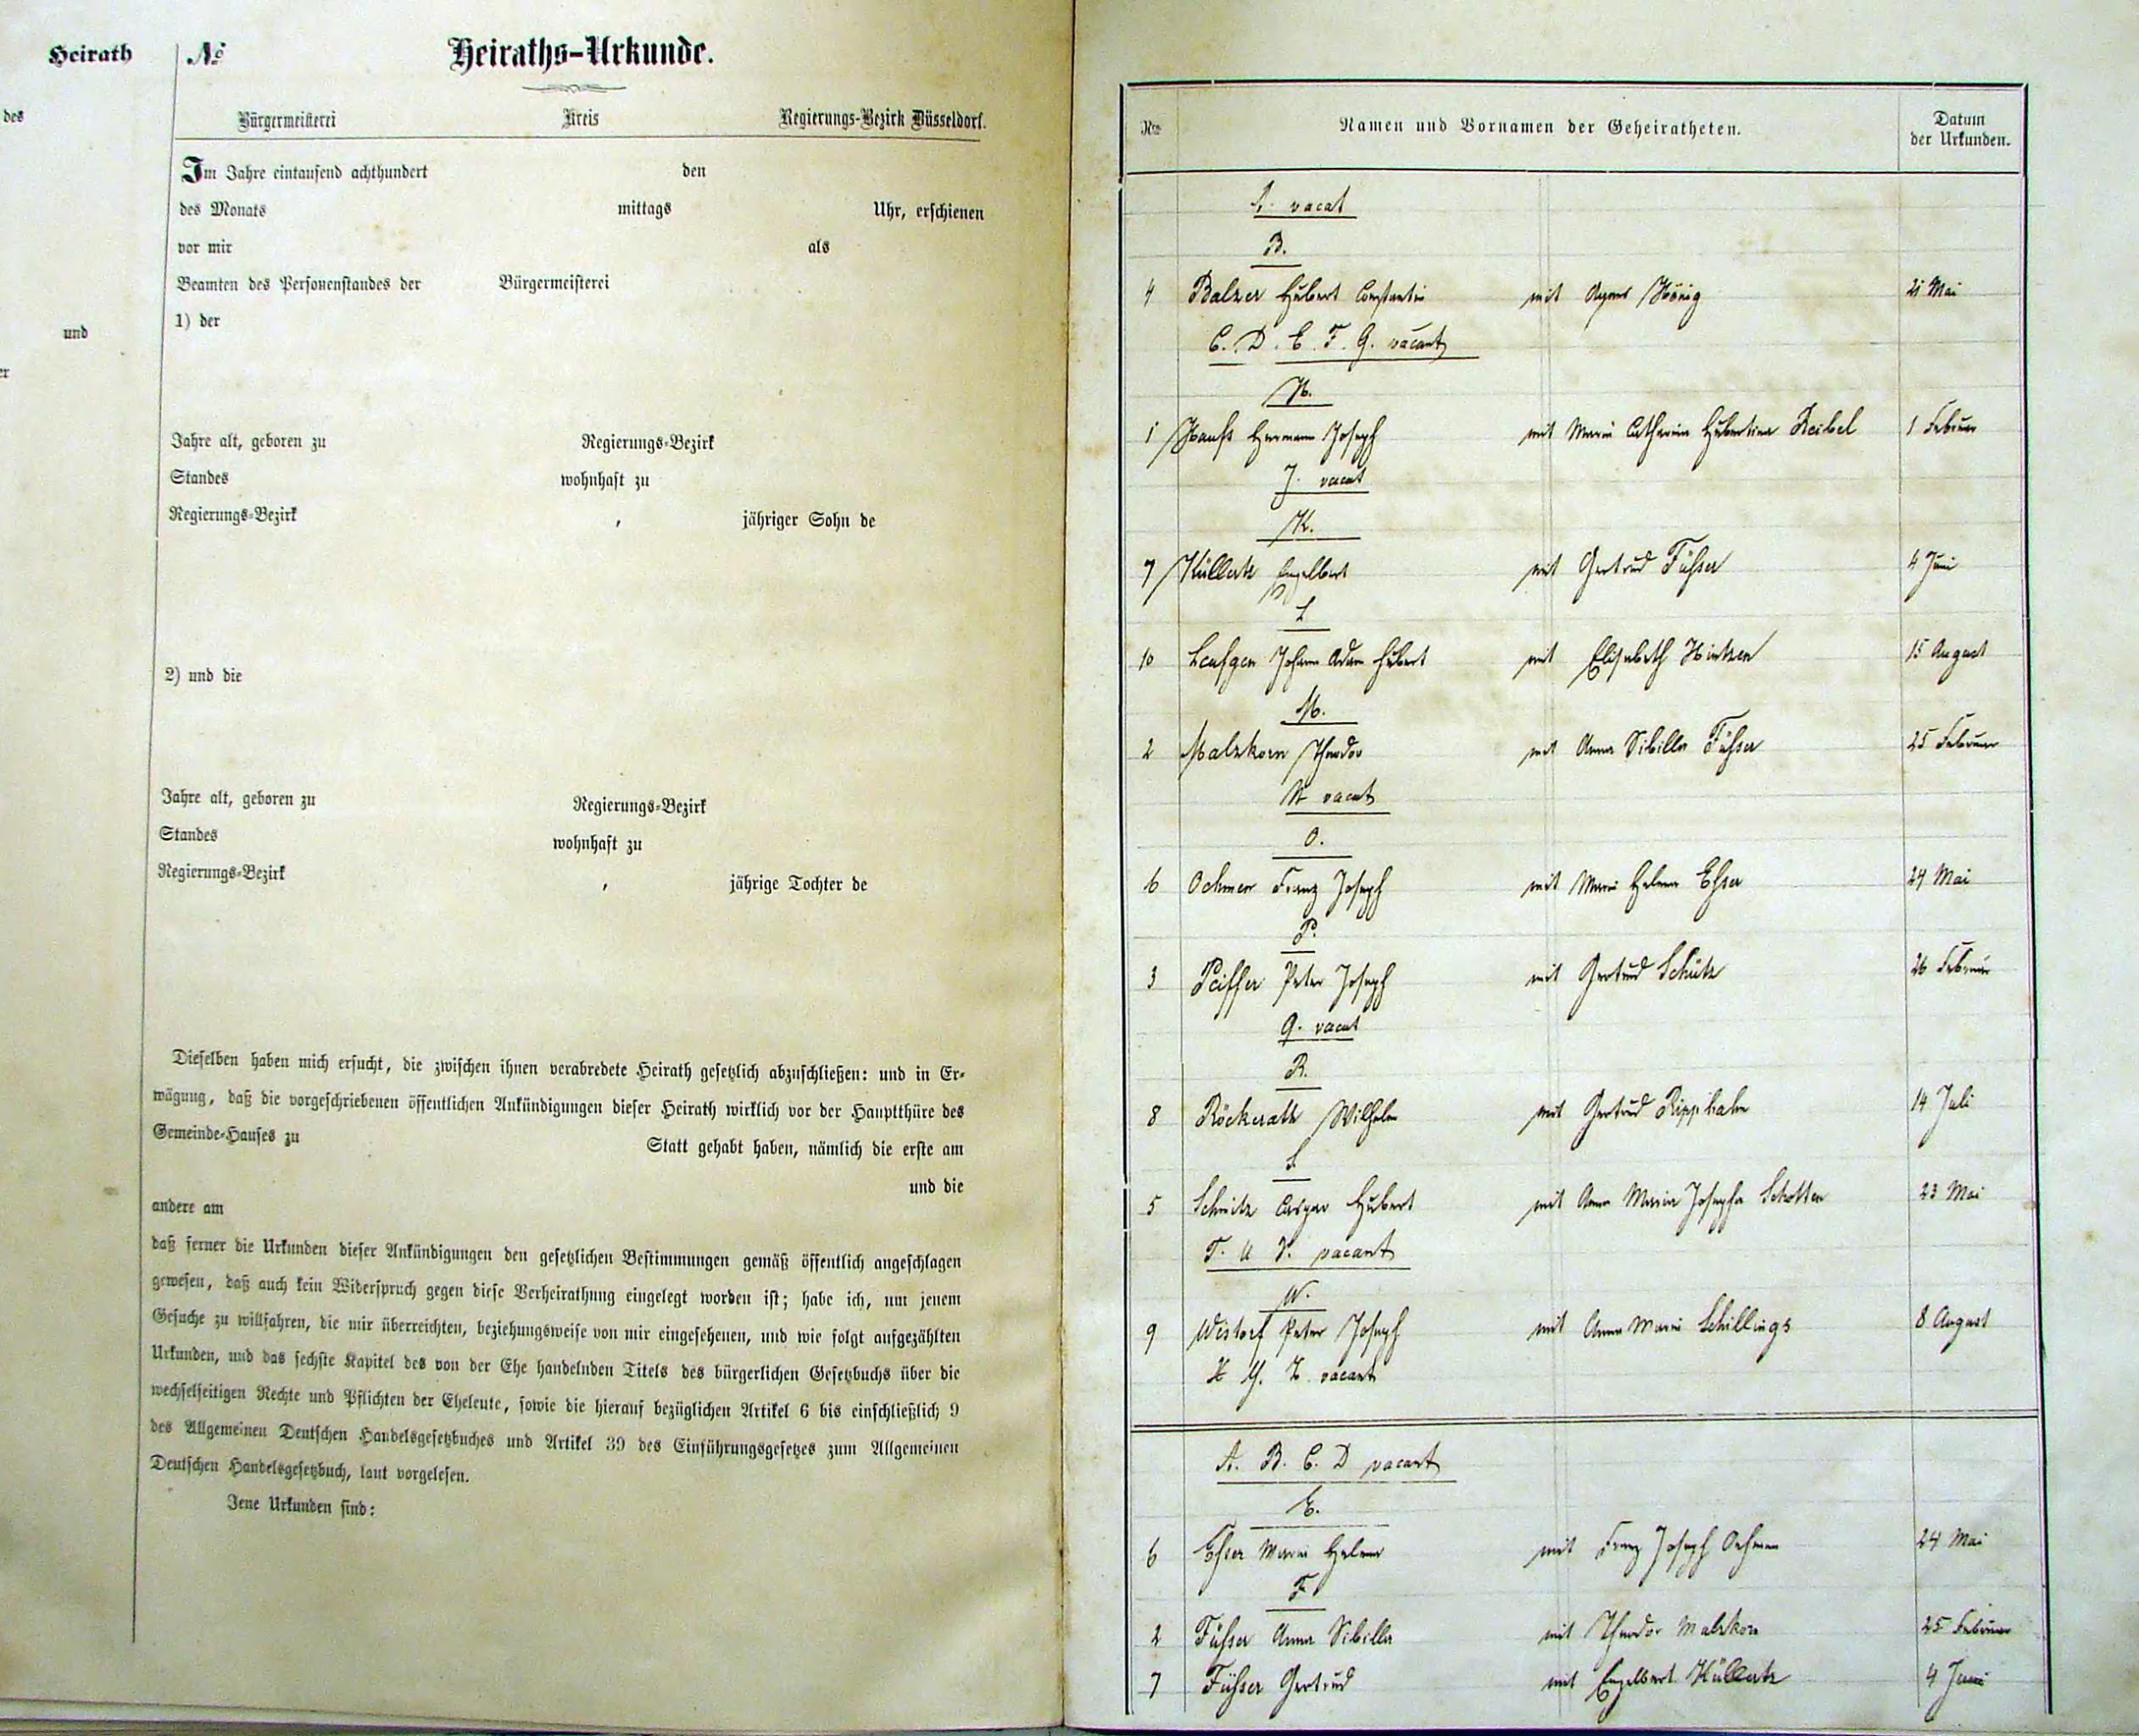 Heirath
des
und
er
No
Heiraths-Urkunde.
Bürgermeisterei Kreis Regierungs-Bezirk Düsseldorf.
Im Jahre eintausend achthundert den
des Monats mittags Uhr, erschienen
vor mir als
Beamten des Personenstandes der Bürgermeisterei
1) der
Jahre alt, geboren zu Regierungs-Bezirk
Standes wohnhaft zu
Regierungs-Bezirk , jähriger Sohn de
2) und die
Jahre alt, geboren zu Regierungs-Bezirk
Standes wohnhaft zu
Regierungs-Bezirk , jährige Tochter de
Dieselben haben mich ersucht, die zwischen ihnen verabredete Heirath gesetzlich abzuschließen: und in Er-
wägung, daß die vorgeschriebenen öffentlichen Ankündigungen dieser Heirath wirklich vor der Hauptthüre des
Gemeinde-Hauses zu Statt gehabt haben, nämlich die erste am
und die
andere am
daß ferner die Urkunden dieser Ankündigungen den gesetzlichen Bestimmungen gemäß öffentlich angeschlagen
gewesen, daß auch kein Widerspruch gegen diese Verheirathung eingelegt worden ist; habe ich, um jenem
Gesuche zu willfahren, die mir überreichten, beziehungsweise von mir eingesehenen, und wie folgt aufgezählten
Urkunden, und das sechste Kapitel des von der Ehe handelnden Titels des bürgerlichen Gesetzbuchs über die
wechselseitigen Rechte und Pflichten der Eheleute, sowie die hierauf bezüglichen Artikel 6 bis einschließlich 9
des Allgemeinen Deutschen Handelsgesetzbuches und Artikel 39 des Einführungsgesetzes zum Allgemeinen
Deutschen Handelsgesetzbuch, laut vorgelesen.
Jene Urkunden sind:
Nro. Namen und Vornamen der Geheiratheten. Datum der Urkunden.
A. vacat
B.
4 Balzer Hubert Constantin mit Agnes König 21 Mai
C. D. E. F. G. vacant
H.
1 Hauß Hermann Joseph mit Maria Catharina Hubertina Reibel 1 Februar
J. vacat
K.
7 Küllertz Engelbert mit Gertrud Füßer 4 Juni
L
10 Leufgen Johann Adam Hubert mit Elisabeth Hintzen 15 August
M.
2 Malzkorn Theodor mit Anna Sibilla Füßer 25 Februar
N vacat
O.
6 Oehmen Franz Joseph mit Maria Helena Eßer 24 Mai
P.
3 Peiffer Peter Joseph mit Gertrud Schütz 26 Februar
Q. vacat
R.
8 Röckerath Wilhelm mit Gertrud Ripphahn 14 Juli
S
5 Schmitz Caspar Hubert mit Anna Maria Josepha Schotten 23 Mai
T. U V. vacant
W.
9 Wistorf Peter Joseph mit Anna Maria Schillings 8 August
X Y. Z. vacant
A. B. C. D vacant
E.
6 Eßer Maria Helena mit Franz Joseph Oehmen 24 Mai
F
2 Füßer Anna Sibilla mit Theodor Malzkorn 25 Februar
7 Füßer Gertrud mit Engelbert Küllertz 4 Juni